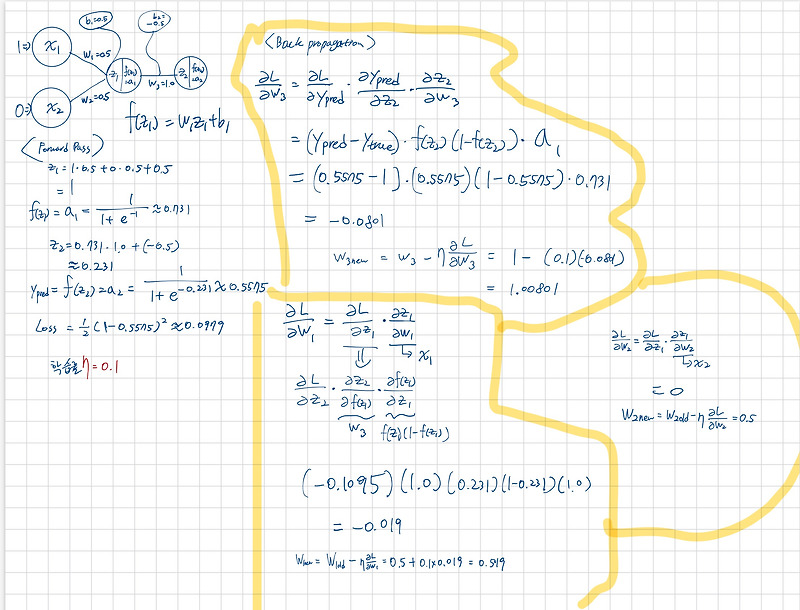 b₁=0.5
b₂=-0.5
1⇒ x₁
w₁=0.5
z₁ f(z₁)=a₁
w₃=1.0
z₂ f(z₂)=a₂
0⇒ x₂
w₂=0.5
f(z₁) = w₁z₁+b₁
<Forward Pass>
z₁ = 1·0.5+0·0.5+0.5
= 1
f(z₁) = a₁ = 1/(1+e⁻¹) ≈ 0.731
z₂ = 0.731·1.0 + (-0.5)
≈ 0.231
Ypred = f(z₂) = a₂ = 1/(1+e^-0.231) ≈ 0.5575
Loss = ½(1-0.5575)² ≈ 0.0979
학습률 η=0.1
<Back propagation>
∂L/∂w₃ = ∂L/∂Ypred · ∂Ypred/∂z₂ · ∂z₂/∂w₃
= (Ypred - Ytrue) · f(z₂)(1-f(z₂)) · a₁
= (0.5575 - 1) · (0.5575)(1-0.5575) · 0.731
= -0.0801
w₃new = w₃ - η ∂L/∂w₃ = 1 - (0.1)(-0.0801)
= 1.00801
∂L/∂w₁ = ∂L/∂z₁ · ∂z₁/∂w₁
⇓ ↳ x₁
∂L/∂z₂ · ∂z₂/∂f(z₁) · ∂f(z₁)/∂z₁
w₃ f(z₁)(1-f(z₁))
(-0.1095)(1.0)(0.231)(1-0.231)(1.0)
= -0.019
w₁new = w₁old - η ∂L/∂w₁ = 0.5+0.1×0.019 = 0.519
∂L/∂w₂ = ∂L/∂z₁ · ∂z₁/∂w₂
↳ x₂
= 0
w₂new = w₂old - η ∂L/∂w₂ = 0.5